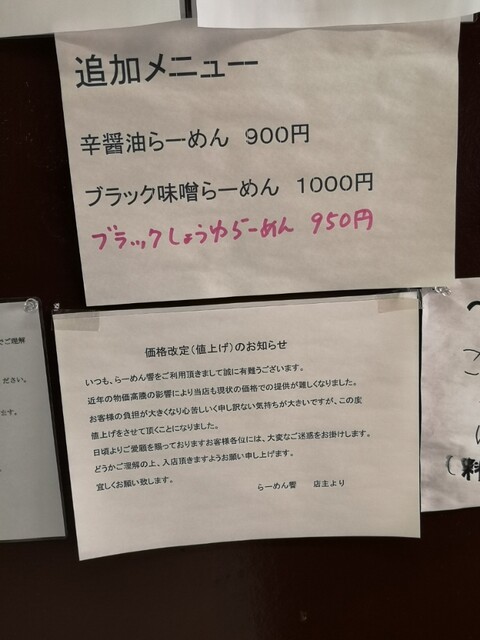 追加メニュー
辛醤油らーめん 900円
ブラック味噌らーめん 1000円
ブラックしょうゆらーめん 950円
価格改定(値上げ)のお知らせ
いつも、らーめん響をご利用頂きまして誠に有難うございます。
近年の物価高騰の影響により当店も現状の価格での提供が難しくなりました。
お客様の負担が大きくなり心苦しいく申し訳ない気持ちが大きいですが、この度
値上げをさせて頂くことになりました。
日頃よりご愛顧を賜っておりますお客様各位には、大変なご迷惑をお掛けします。
どうかご理解の上、入店頂きますようお願い申し上げます。
宜しくお願い致します。
らーめん響 店主より
でご理解
ください。
ます。
ご
(料